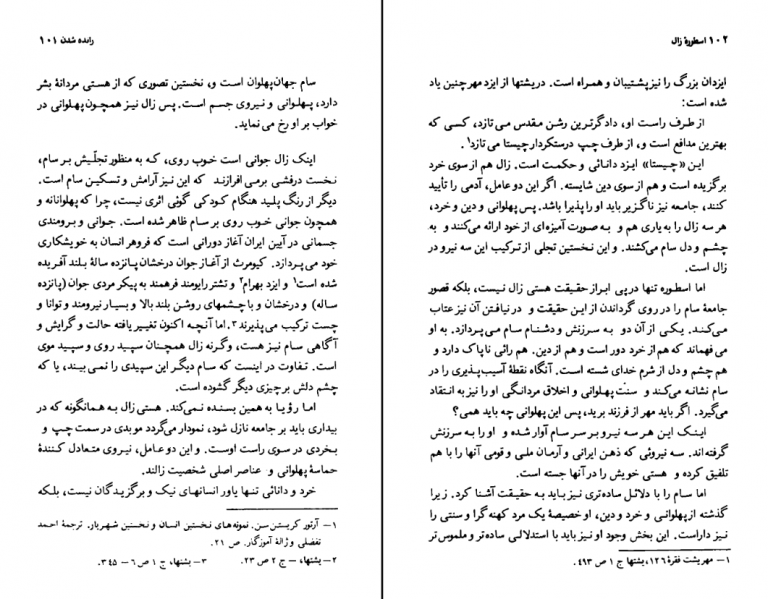 رانده شدن ۱۰۱
سام جهان‌پهلوان است و، نخستین تصوری که از هستی مردانهٔ بشر
دارد، پهلوانی و نیروی جسم است. پس زال نیز همچون پهلوانی در
خواب بر او رخ می نماید.
اینک زال جوانی است خوب روی، که به منظور تجلّیش بر سام،
نخست درفشی برمی افرازند که این نیز آرامش و تسکین سام است.
دیگر از رنگ پلید هنگام کودکی گوئی اثری نیست، چرا که پهلوانانه و
همچون جوانی خوب روی بر سام ظاهر شده است. جوانی و برومندی
جسمانی در آیین ایران آغاز دورانی است که فروهر انسان به خویشکاری
خود می پردازد. کیومرث از آغاز جوان درخشان پانزده سالهٔ بلند آفریده
شده است۱ و ایزد بهرام۲ و تشتر رایومند فرهمند به پیکر مردی جوان (پانزده
ساله) و درخشان و با چشمهای روشن بلند بالا و بسیار نیرومند و توانا و
چست ترکیب می‌پذیرند۳. اما آنچه اکنون تغییر یافته حالت و گرایش و
آگاهی سام نیز هست، وگرنه زال همچنان سپید روی و سپید موی
است. تفاوت در اینست که سام دیگر این سپیدی را نمی بیند، یا که
چشم دلش بر چیزی دیگر گشوده است.
اما رؤیا به همین بسنده نمی‌کند. هستی زال به همانگونه که در
بیداری باید بر جامعه نازل شود، نمودار می‌گردد موبدی در سمت چپ و
بخردی در سوی راست اوست. و این دو عامل، نیروی متعادل کنندهٔ
حماسهٔ پهلوانی و عناصر اصلی شخصیت زالند.
خرد و دانائی تنها یاور انسانهای نیک و برگزیدگان نیست، بلکه
۱— آرتور کریستن سن. نمونه‌های نخستین انسان و نخستین شهریار. ترجمهٔ احمد
تفضلی و ژالهٔ آموزگار. ص ۲۱.
۲— یشتها، — ج ۲ ص ۲۳. ۳— یشتها، ج ۱ ص ۶— ۳۴۵.
۱۰۲ اسطورهٔ زال
ایزدان بزرگ را نیز پشتیبان و همراه است. در یشتها از ایزد مهر چنین یاد
شده است:
از طرف راست او، دادگرترین رشن مقدس می تازد، کسی که
بهترین مدافع است و، از طرف چپ درستکردار چیستا می تازد۱.
این «چیستا» ایزد دانائی و حکمت است. زال هم از سوی خرد
برگزیده است و هم از سوی دین شایسته. اگر این دو عامل، آدمی را تأیید
کنند، جامعه نیز ناگزیر باید او را پذیرا باشد. پس پهلوانی و دین و خرد،
هر سه زال را به یاری هم و به صورت آمیزه‌ای از خود ارائه می‌کنند و به
چشم و دل سام می‌کشند. و این نخستین تجلی از ترکیب این سه نیرو در
زال است.
اما اسطوره تنها در پی ابراز حقیقت هستی زال نیست، بلکه قصور
جامعهٔ سام را در روی گرداندن از این حقیقت و در نیافتن آن نیز عتاب
می‌کند. یکی از آن دو به سرزنش و دشنام سام می‌پردازد. به او
می‌فهماند که هم از خرد دور است و هم از دین. هم رائی ناپاک دارد و
هم چشم و دل از شرم خدای شسته است. آنگاه نقطهٔ آسیب‌پذیری را در
سام نشانه می‌کند و سنّت پهلوانی و اخلاق مردانگی او را نیز به انتقاد
می‌گیرد. اگر باید مهر از فرزند برید، پس این پهلوانی چه باید همی؟
اینک این هر سه نیرو بر سر سام آوار شده و او را به سرزنش
گرفته‌اند. سه نیروئی که ذهن ایرانی و آرمان ملی و قومی آنها را با هم
تلفیق کرده و هستی خویش را در آنها جسته است.
اما سام را با دلائل ساده‌تری نیز باید به حقیقت آشنا کرد. زیرا
گذشته از پهلوانی و خرد و دین، او خصیصهٔ یک مرد کهنه گرا و سنتی را
نیز داراست. این بخش وجود او نیز باید با استدلالی ساده‌تر و ملموس‌تر
۱— مهریشت فقرهٔ ۱۲۶، یشتها ج ۱ ص ۴۹۳.